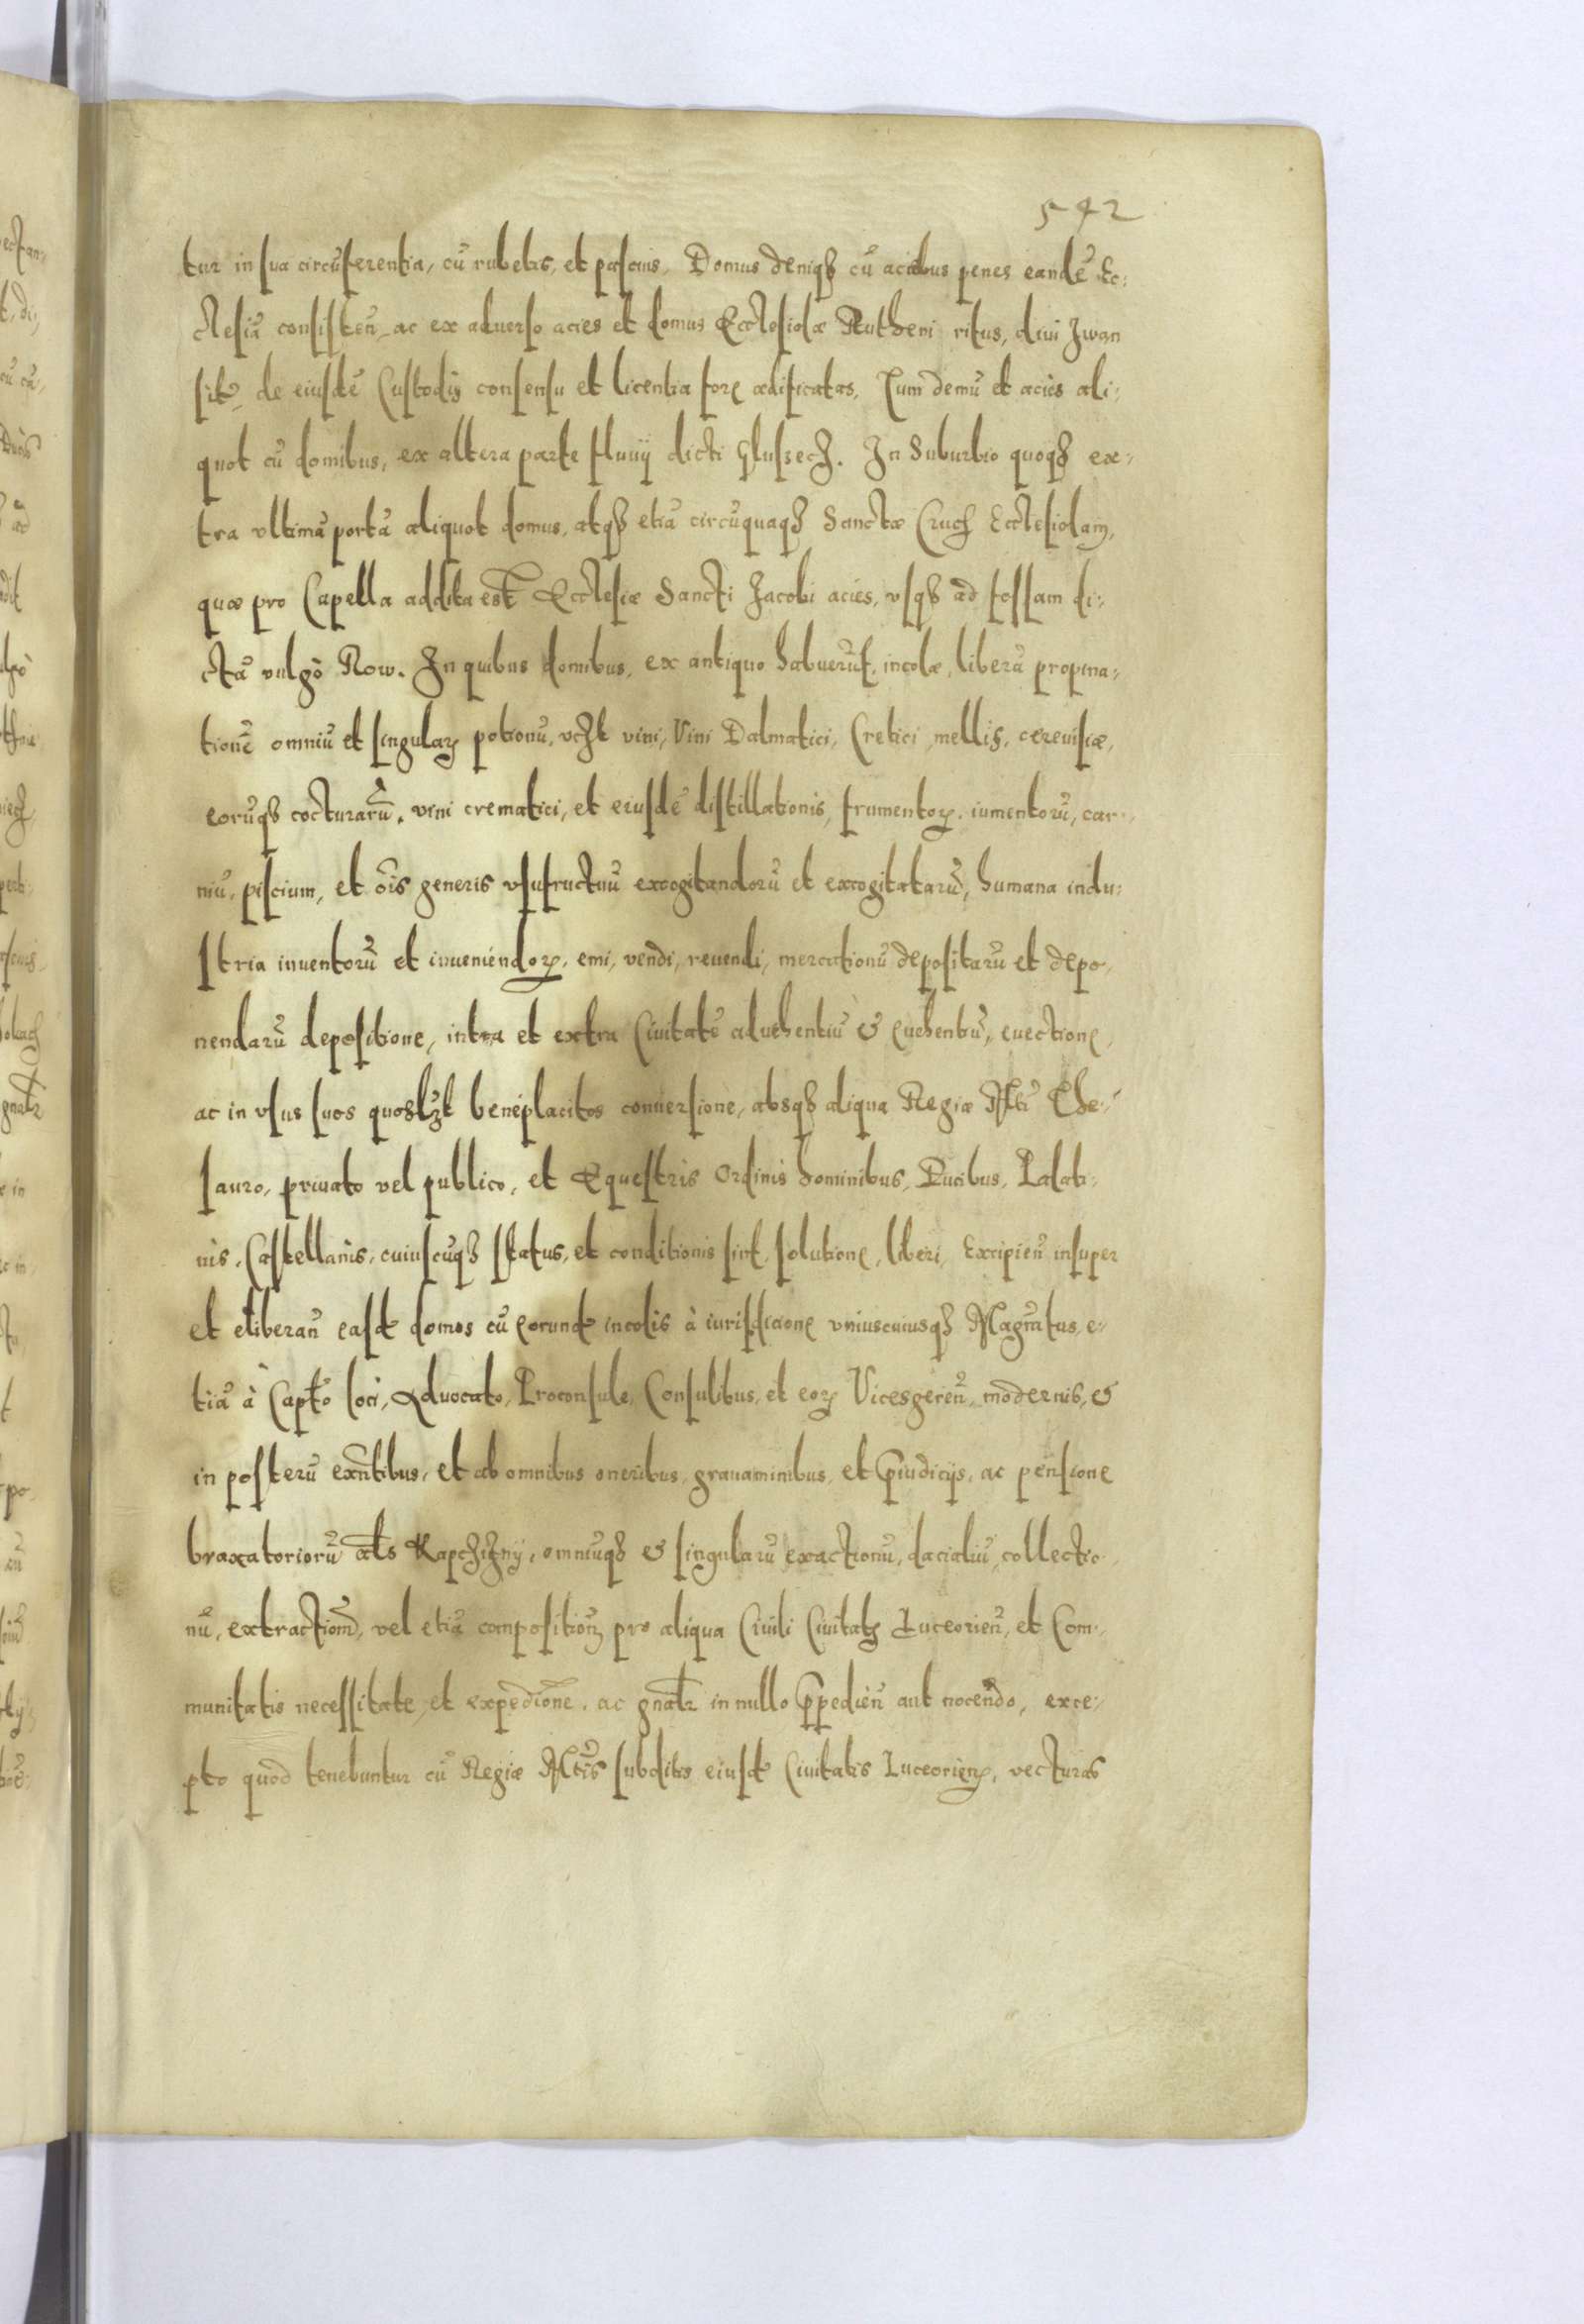 542
tur in sua circūferentia, cū rubetis, et pascuis. Domus deniqꝫ cū aciebus penes eandē Ec:
clesiā consisteñ, ac ex aduerso acies et domus Ecclesiolæ Rutheni ritus, diui Iwan
sitæ, de eiusdē Custodis consensu et licentia fore ædificatas. Tum demū et acies ali:
quot cū domibus, ex altera parte fluuij dicti Hlussecz. In Suburbio quoqꝫ ex:
tra vltimā portā aliquot domus, atqꝫ etiā circūquaqꝫ Sanctæ Crucis Ecclesiolam,
quæ pro Capella addita est Ecclesiæ Sancti Jacobi acies, vsqꝫ ad fossam di:
ctā vulgò Row. In quibus domibus, ex antiquo habuerūt incolæ, liberā propina:
tionē omniū et singulaꝝ potionū, vꝫt vini, Vini Dalmatici, Cretici, mellis, cereuisiæ,
eorūqꝫ cocturarū, vini crematici, et eiusdē distillationis, frumentoꝝ, iumentorū, car:
niū, piscium, et ōis generis vsufructuū excogitandorū et excogitatarū, humana indu:
stria inuentorū et inueniendoꝝ, emi, vendi, reuendi, mercationū depositarū et depo:
nendarū depositione, intra et extra Ciuitatē aduehentiū & euehentiū, euectione,
ac in vsus suos quoslꝫt beneplacitos conuersione, absqꝫ aliqua Regiæ Mtti The:
sauro, priuato vel publico, et Equestris Ordinis hominibus, Ducibus, Palati:
nis, Castellanis, cuiuscūqꝫ status, et conditionis sint, solutione, liberi, Excipieñ insuper
et eliberañ easd domos cū eorund incolis à iurisdictione vniuscuiusqꝫ Magrātus, e:
tiā à Captō loci, Aduocato, Proconsule, Consulibus, et eoꝝ Vicesgereñ, modernis, &
in posterū exñtibus, et ab omnibus oneribus, grauaminibus, et p̄iudicijs, ac pensione
braxatoriorū als Kapczizny, omniūqꝫ & singularū exactionū, dacialiū, collectio:
nū, extractionū, vel etiā compositionū pro aliqua Ciuili Ciuitatis Luceorieñ, et Com:
munitatis necessitate, et expeditione, ac gñalr in nullo p̄pedieñ aut nocendo, exce:
pto quod tenebuntur cū Regiæ Mttis subditis eiusd Ciuitatis Luceorieñ, vecturas